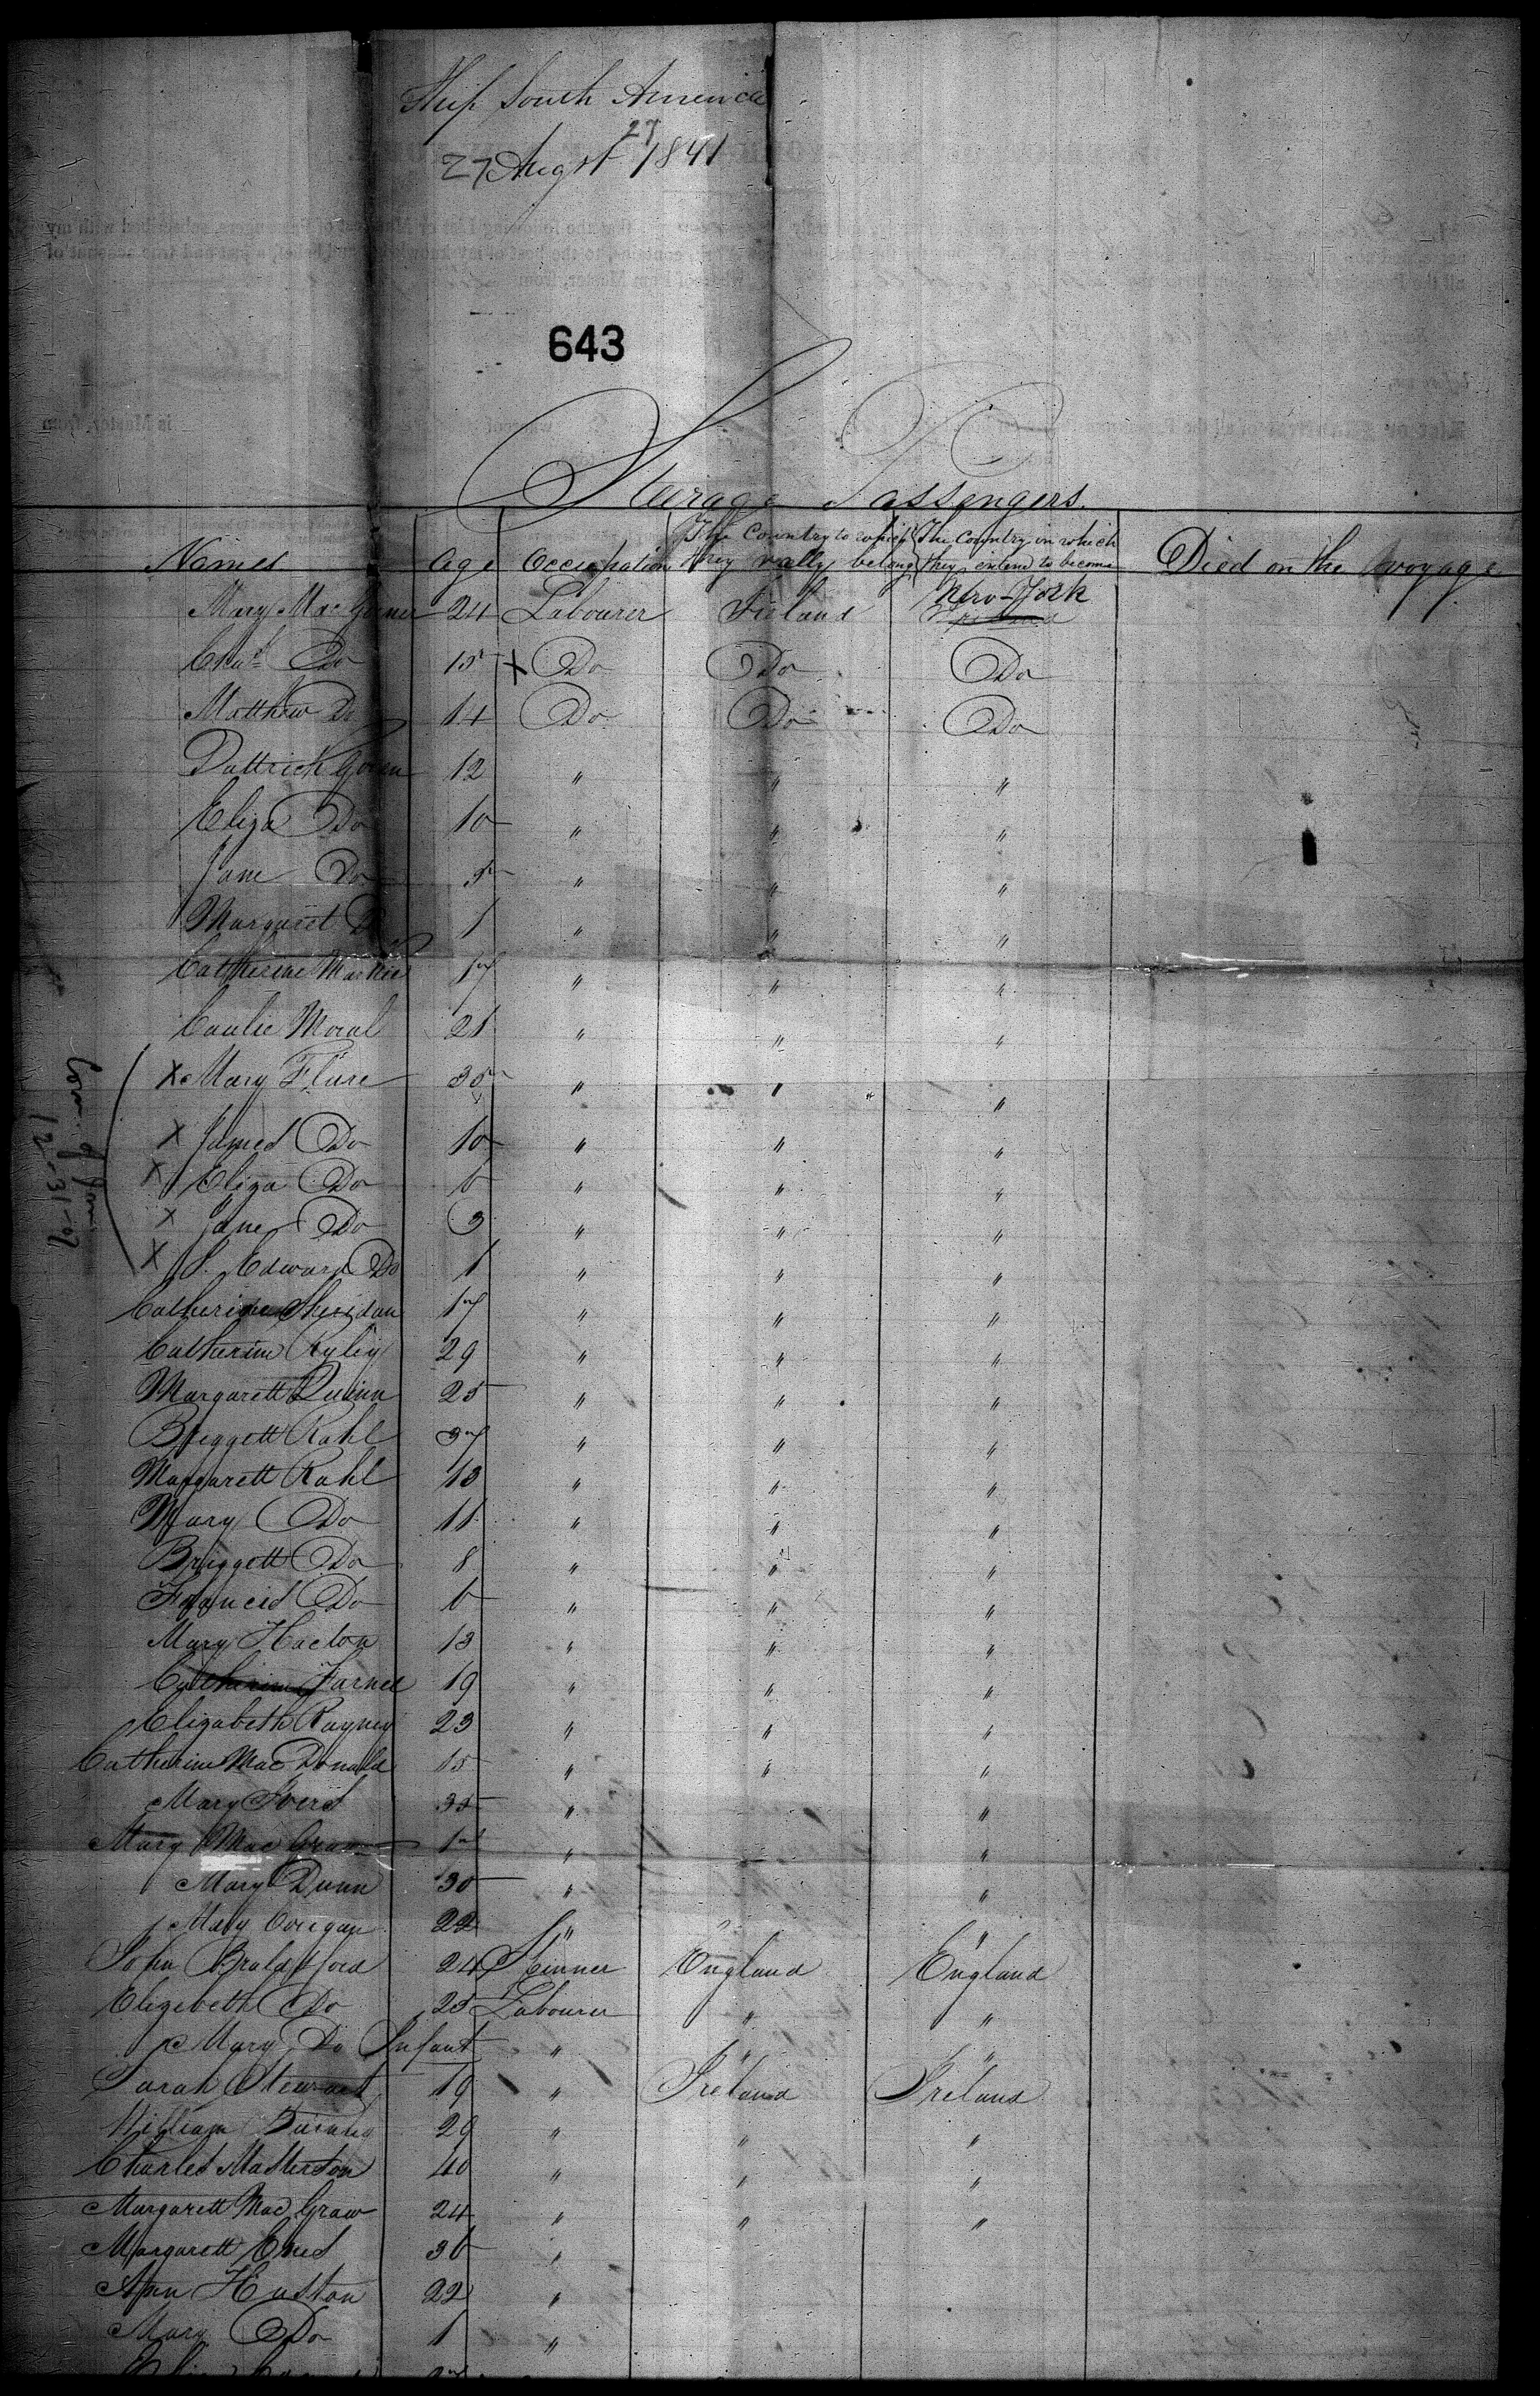 Ship South America
27
27 Augst 1841
643
Steerage Passengers.
Names Age Occupation The Country to which they really belong The Country in which they intend to become Died on the voyage
Mary 24 Labourer Ireland New-York
Chas Do 15 x Do Do Do
Matthew Do 14 Do Do Do
Pattrick 12 " " "
Eliza Do 10 " " "
Jane Do 5 " " "
Margaret D 1 " " "
Catherine 17 " " "
Moral 21 " " "
X Mary Flure 35 " " "
X James Do 10 " " "
X Eliza Do 6 " " "
X Jane Do 3 " " "
X Edward Do 1 " " "
12-31-07
Catherine Sheridan 17 " " "
Catherine Ryley 29 " " "
Margarett Quinn 25 " " "
Briggett Rahl 37 " " "
Margarett Rahl 13 " " "
Mary Do 11 " " "
Briggett Do 8 " " "
Francis Do 6 " " "
Mary Hacton 13 " " "
Catherine 19 " " "
Elizabeth Rayney 23 " " "
Catherine Mac Donald 15 " " "
Mary 35 " "
Mary Mac 17 " "
Mary Dunn 30 " "
Mary Corigan 22 " "
John 24 England England
Elizebeth Do 25 Labourer " "
Mary Do Infant " " "
Sarah Stewart 19 " Ireland Ireland
William 29 " " "
Charles Masterton 40 " " "
Margarett Mac Graw 24 " " "
Margarett 36 "
Ann Huston 22 "
Mary Do 1 "